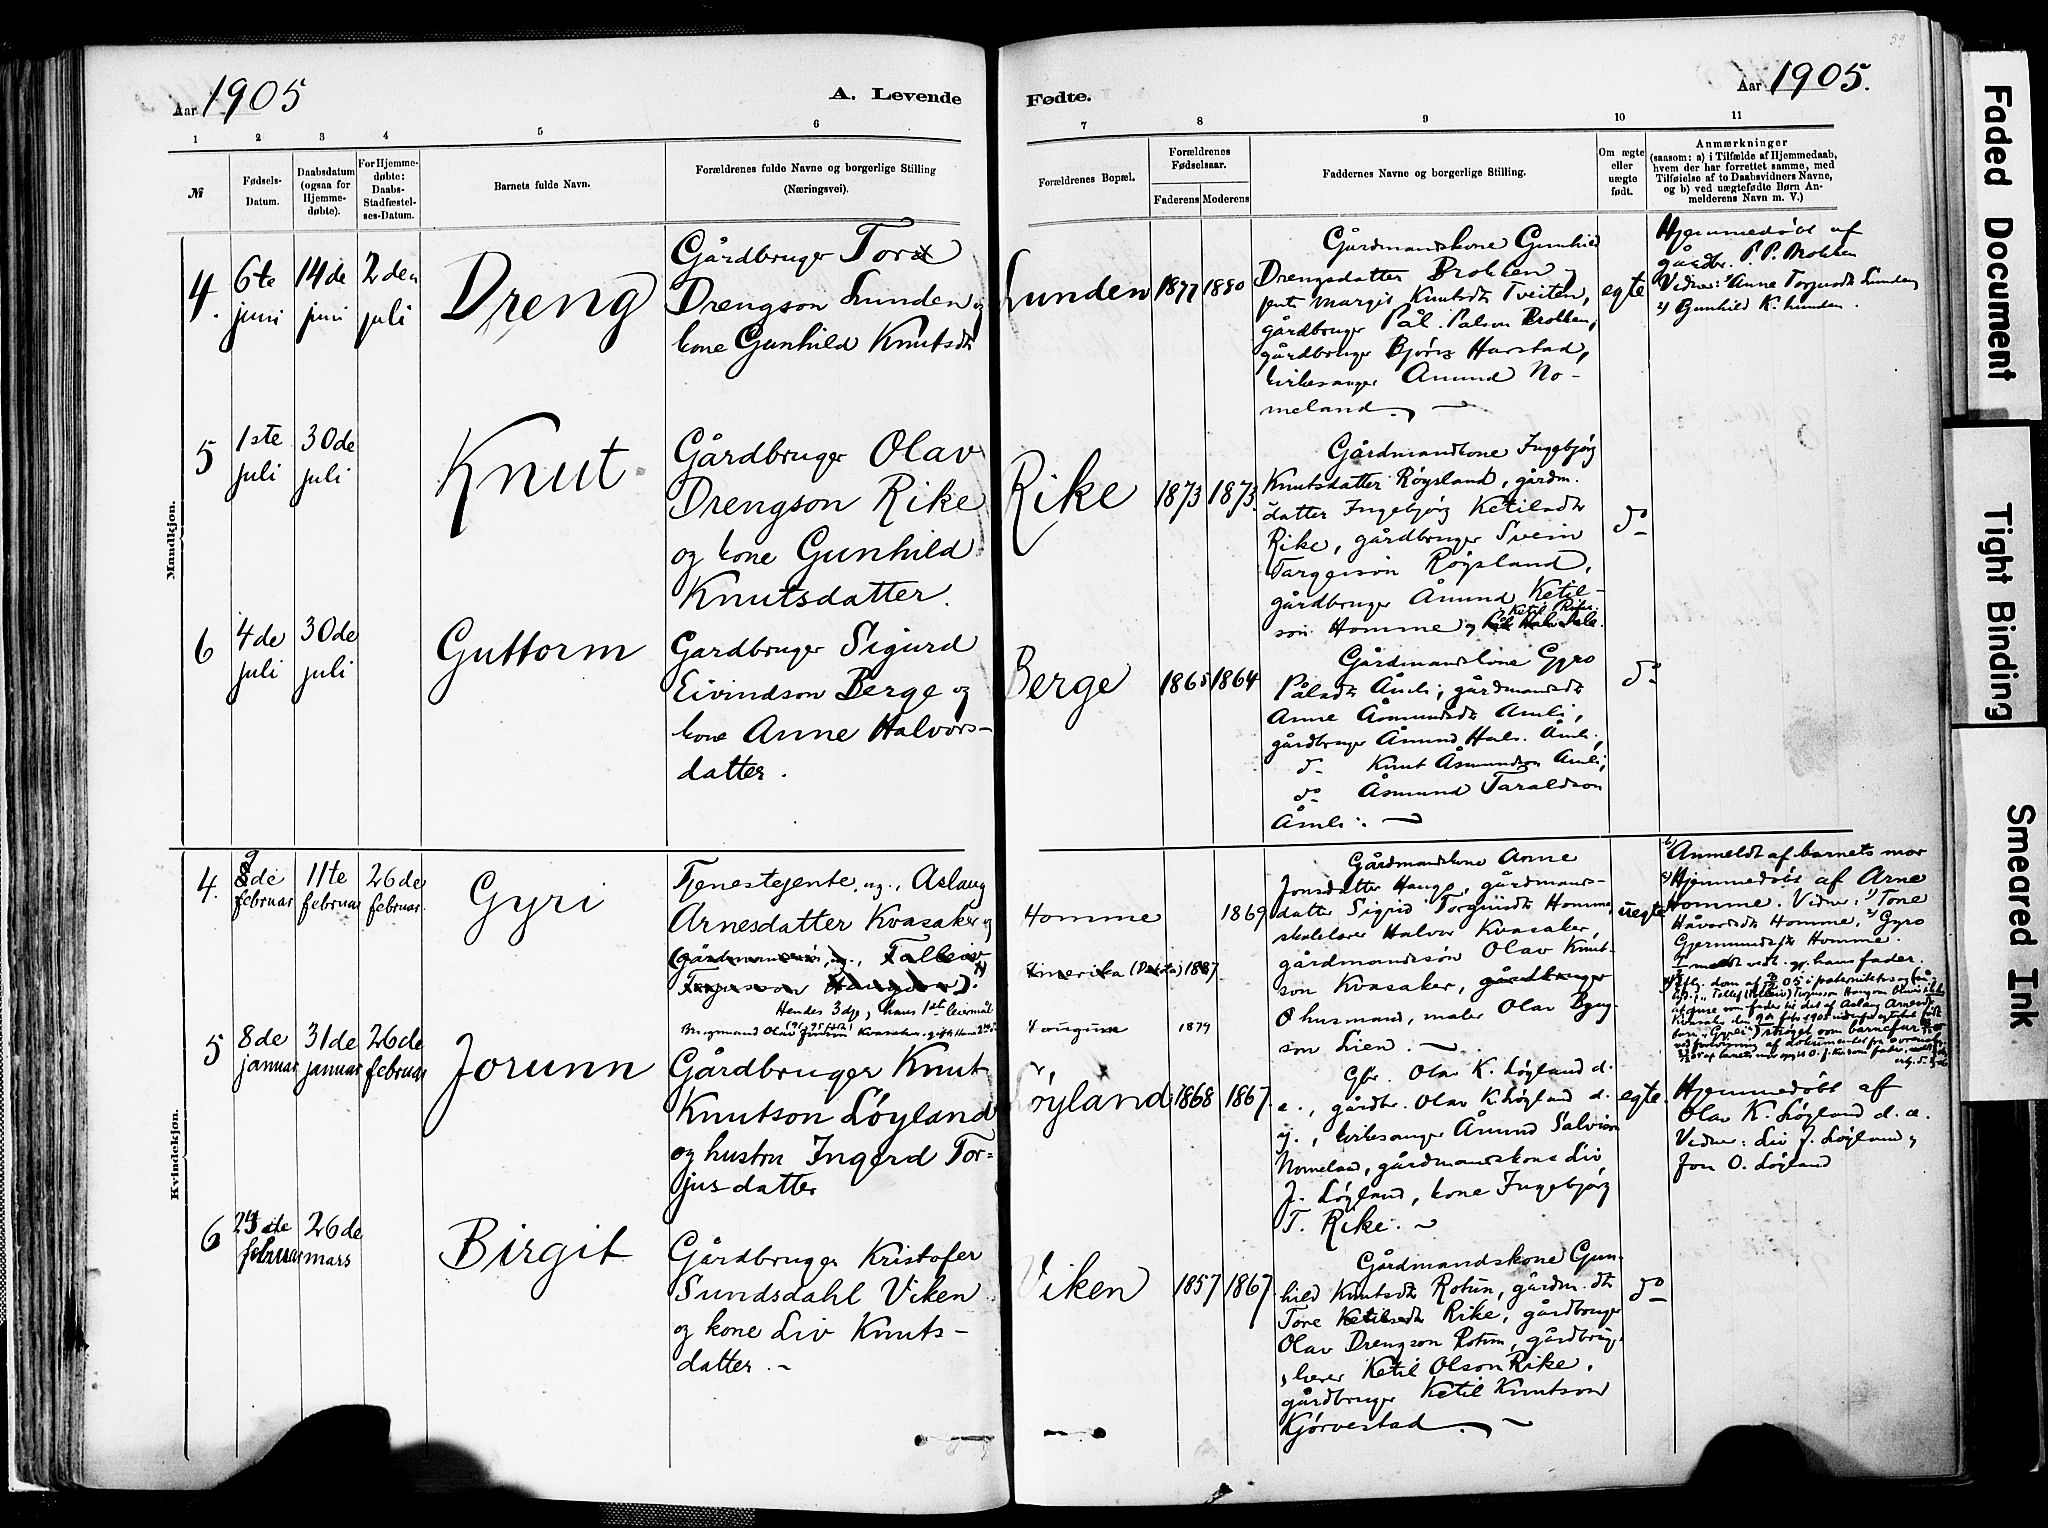 Aar 1905
A. Levende
1 2 3 4 5 6
№
Fødsels-
Datum.
Daabsdatum
(ogsaa for
Hjemme-
døbte).
For Hjemme-
døbte:
Daabs-
Stadfæstel-
ses-Datum.
Barnets fulde Navn.
Forældrenes fulde Navne og borgerlige Stilling
(Næringsvei).
Mandkjøn.
4.
6te
juni
14de
juni
2den
juli
Dreng
Gårdbruger Tor
Drengson Lunden og
kone Gunhild Knutsdtr
5
1ste
juli
30de
juli
Knut
Gårdbruger Olav
Drengson Rike
og kone Gunhild
Knutsdatter.
6
4de
juli
30de
juli
Guttorm
Gardbruger Sigurd
Eivindson Berge og
kone Anne Halvors-
datter.
Kvindekjøn.
4.
9de
februar
11te
februar
26de
februar.
Gyri
Tjenestejente, ug., Aslaug
Arnesdatter Kvasaker og
Hendes 3die, hans 1ste leiermål
5
8de
januar
31de
januar
26de
februar
Jorunn
Gårdbruger Knut
Knutson Løyland
og hustru Ingerd Tor-
jusdatter
6
februar
26de
mars
Birgit
Gårdbruger Kristofer
Sundsdahl Viken
og kone Liv Knuts-
datter.
59
Fødte.
Aar 1905.
7 8 9 10 11
Forældrenes Bopæl.
Forældrenes
Fødselsaar.
Faderens Moderens
Faddernes Navne og borgerlige Stilling.
Om ægte
eller
uægte
født.
Anmærkninger
(saasom: a) i Tilfælde af Hjemmedaab,
hvem der har forrettet samme, med
Tilføielse af to Daabsvidners Navne,
og b) ved uægtefødte Børn An-
melderens Navn m. V.)
Lunden 1877 1880
Gårdmandskone Gunhild
Drengsdatter Brokken
pit. Margit Knutsdtr Tveiten,
gårdbruger Pål Palson Brokken,
gårdbruger Bjørn Harstad,
kirkesanger Åmund No-
meland.
egte
Hjemmedøbt af
gårdbr. P. P. Brokken
Vidner: 1) Anne Torjusdtr Lunden
2) Gunhild K. Lunden.
Rike 1873 1873.
Gårdmandkone Ingebjørg
Knutsdatter Røysland, gårdm.
datter Ingebjørg Ketilsdtr
Rike, gårdbruger Svein
Targeison Røysland,
gårdbruger Åmund Ketil-
son Homme og Ketil Rike.
do
Berge 1865 1864
Gårdmandskone Gyro
Pålsdtr Åmli, gårdmandsdtr
Anne Åsmundsdtr Åmli,
gårdbruger Åmund Halv. Åmli,
do Knut Åsmundson Åmli,
do Åsmund Taraldson
Åmli.
do
Homme 1869
Amerika (Dakota) 1887
1879
Gårdmandskone Anne
Jonsdatter Hauge, gårdmans-
datter Sigrid Torgrimsdtr Homme,
skolelærer Halvor Kvasaker,
gårdmandssøn Olav Knut-
son Kvasaker, gårdbruger
husmand, maler Olav Byg-
son Lien.
uegte
Anmeldt af barnets mor
Hjemmedøbt af Arne
Homme. Vidner: 1) Tone
Håvorsdtr Homme, 2) Gyro
Gjermundsdtr Homme.
Løyland 1868 1867.
Gbr. Olav K. Løyland d.
e., gårdbr. Olav K. Løyland d.
y., kirkesanger Åmund Salveson
Nomeland, gårdmandskone Liv
J. Løyland, kone Ingebjørg
T. Rike.
egte.
Hjemmedøbt af
Olav K. Løyland d. e.
Vidner: Liv J. Løyland og
Jon O. Løyland
Viken 1857 1867.
Gårdmandskone Gun-
hild Knutsdtr Rotun, gårdm. dtr
Tore Ketilsdtr Rike, gårdbruger
Olav Drengson Rotun, gårdbrug.
, lærer Ketil Olson Rike,
gårdbruger Ketil Knutson
Kjørvestad.
do
Faded Document
Tight Binding
Smeared Ink